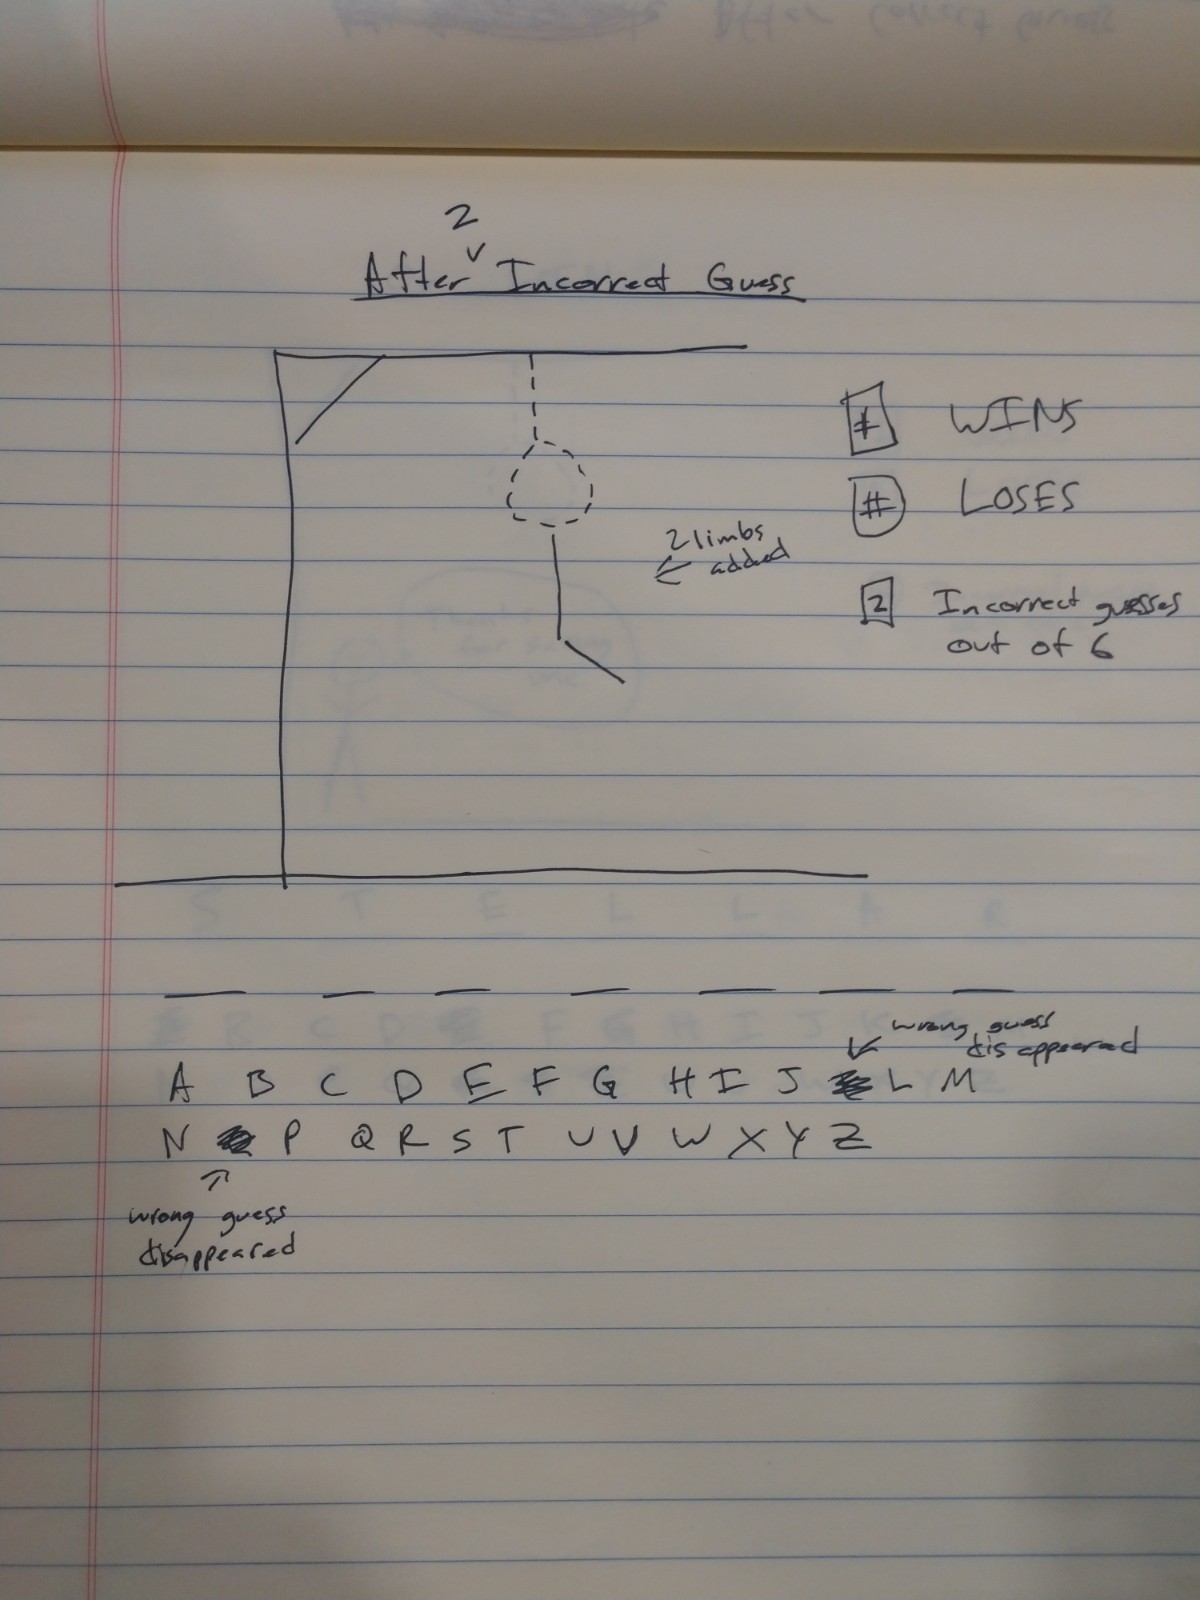 After 2 Incorrect Guess
# WINS
# LOSES
2 limbs
added
2 Incorrect guesses
out of 6
wrong guess
disappeared
A B C D E F G H I J L M
N P Q R S T U V W X Y Z
wrong guess
disappeared